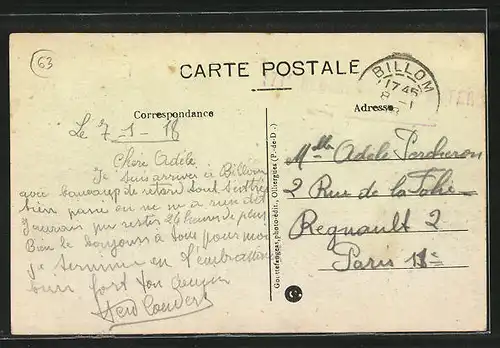 63
CARTE POSTALE
BILLOM
17 45
8 - 1
Correspondance
Adresse
Le 7_1_18
Chère Adèle
Je suis arriver à Billom
avec beaucoup de retard tout s'est
bien passé on ne m'a rien dit
j'aurais pu rester 24 heures de plus
Bien le bonjour à tous pour moi
je termine en t'embrassant
bien fort ton
Melle Adèle Percheron
2 Rue de la Folie
Regnault 2
Paris 11e
Gouttefangeas, photo-édit., Olliergues (P.-de-D.)